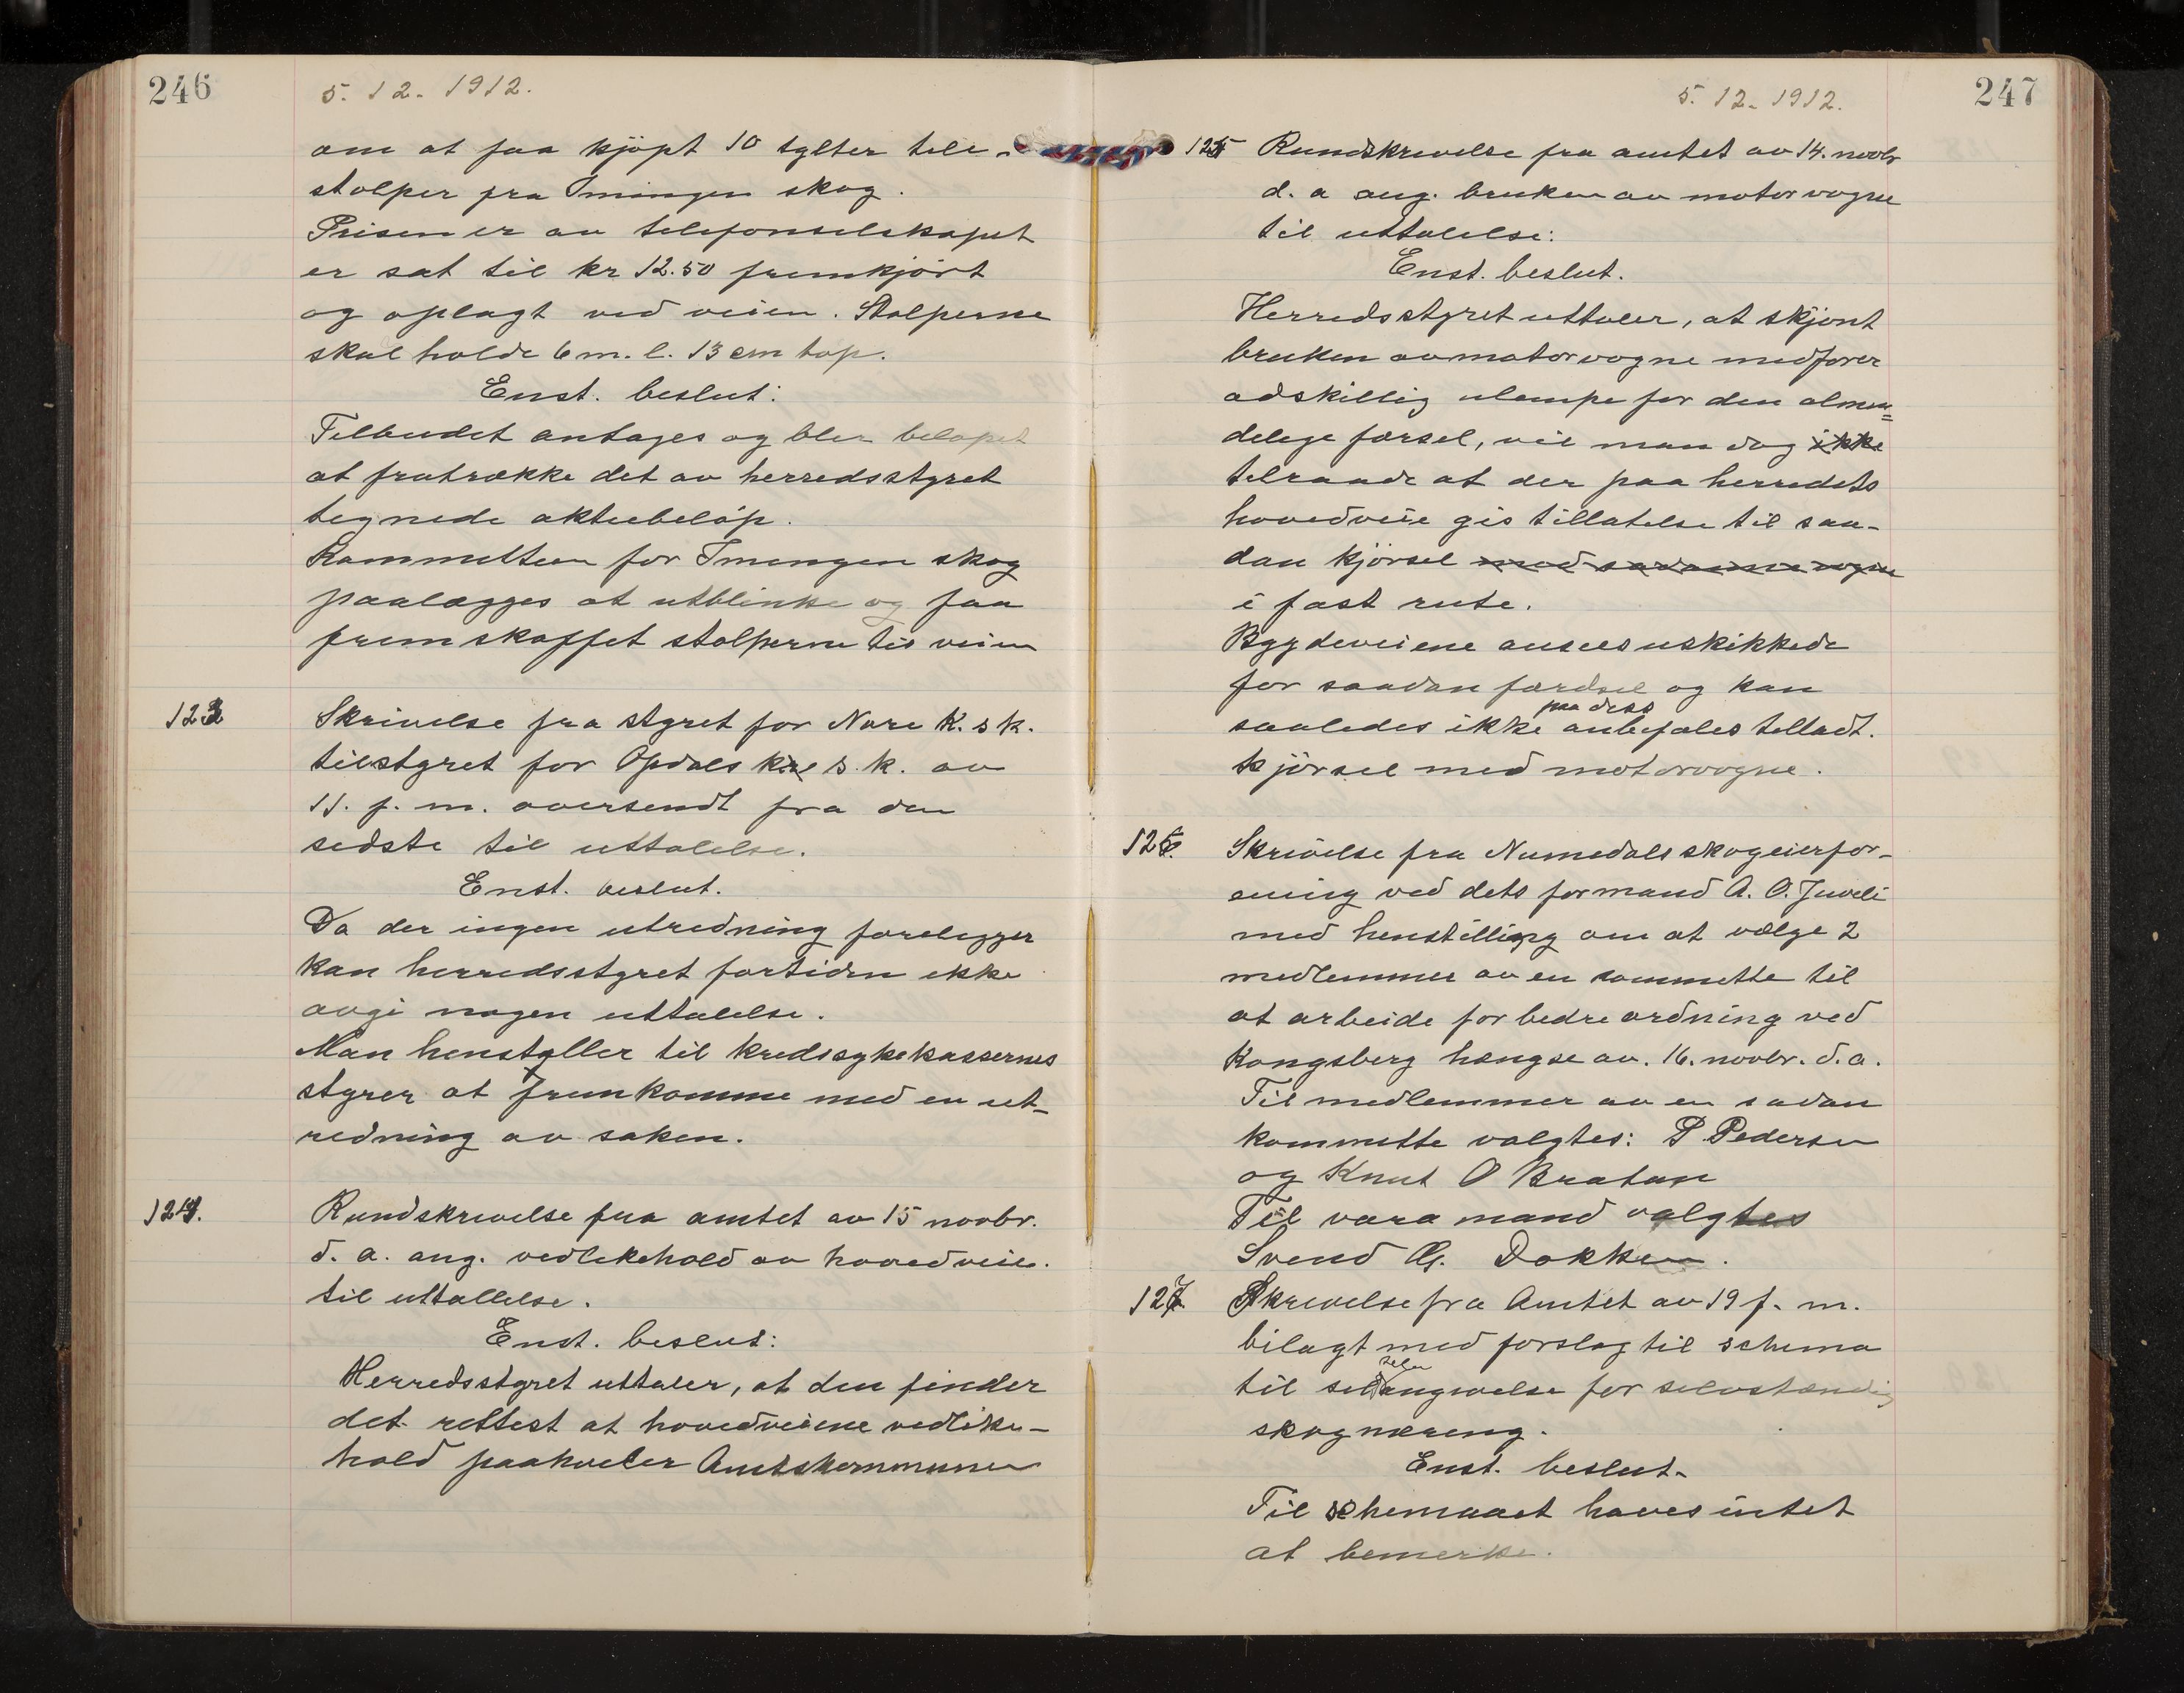 246
5. 12. 1912.
om at faa kjöpt 10 tylter tele-
stolper fra Imingen skog.
Prisen er av telefonselskapet
er sat til kr 12.50 fremkjört
og oplagt ved veien. Stolperne
skal holde 6 m. l. 13 cm top.
Enst. beslut:
Tilbudet antages og blir belöpet
at fratrække det av herredsstyret
tegnede aktiebelöp.
Kommitteen for Imingen skog
paalægges at utblinke og faa
fremskaffet stolperne til veien
123
Skrivelse fra styret for Nore K. s k.
til styret for Opdals k. s. k. av
11. f. m. oversendt fra den
sidste til uttalelse.
Enst. beslut.
Da der ingen utredning forelegger
kan herredsstyret fortiden ikke
avgi nogen uttalelse.
Man henstiller til kredssykekassernes
styrer at fremkomme med en ut-
redning av saken.
124.
Rundskrivelse fra amtet av 15 novbr.
d. a. ang. vedlekehold av hovedveie.
til uttallelse.
Enst. beslut:
Herredsstyret uttaler, at den finder
det rettest at hovedveiene vedlike-
hold paahviler Amtskommunen
247
5. 12. 1912.
125 Rundskrivelse fra amtet av 14. novbr
d. a ang. bruken av motorvogne
til uttalelse:
Enst. beslut.
Herredsstyret uttaler, at skjönt
bruken av motorvogne medförer
adskillig ulempe for den almen=
delige færsel, vil man dog ikke
tilraade at der paa herredets
hovedveie gis tillatelse til saa-
dan kjörsel med vogne
i fast rute.
Bygdeveiene ansees uskikkede
for saadan færdsel og kan
paa diss
saaledes ikke anbefales telladt.
kjörsel med motorvogne.
126.
Skrivelse fra Numedals skogeierfor-
ening ved dets formand A. O. Juveli
med henstilling om at vælge 2
medlemmer av en kommitte til
at arbeide for bedre ordning ved
Kongsberg hængse av. 16. novbr. d. a.
Til medlemmer av en sadan
kommitte valgtes: P. Pedersen
og Knut O Bratan
Til vara mand valgtes
Svend G. Dokken.
127
Skrivelse fra Amtet av 19 f. m.
bilagt med forslag til schema
selv
til selangivelse for selvstændig
skognæring.
Enst. beslut.
Til schemaet haves intet
at bemerke.